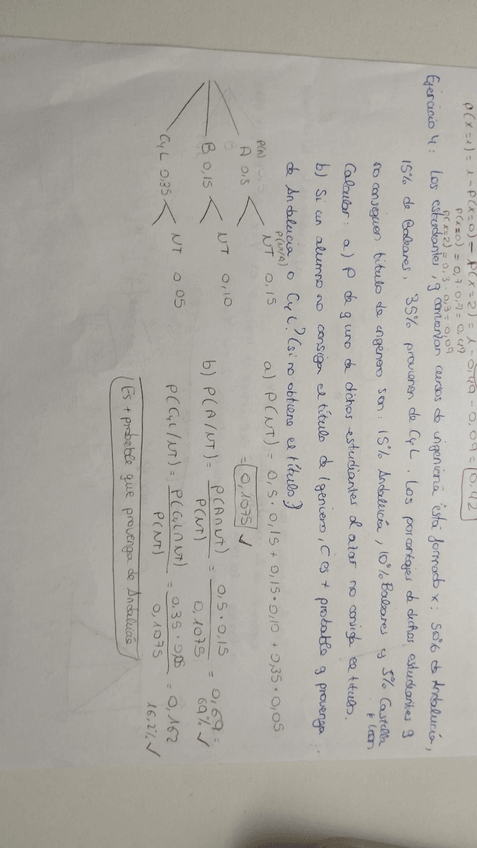 P(x=1) = 1 - P(x=0) - P(x=2) = 1 - 0,49 - 0,09 = 0,42
P(x=0) = 0,7·0,7 = 0,49
P(x=2) = 0,3·0,3 = 0,09
Ejercicio 4: Los estudiantes q comienzan cursos de ingeniería está formado x: 50% de Andalucía,
15% de Baleares, 35% provienen de CyL. Los porcentajes de dichos estudiantes q
no consiguen título de ingeniero son: 15% Andalucía, 10% Baleares y 5% Castilla
y León
Calcular: a) P de q uno de dichos estudiantes al azar no consiga el título.
b) Si un alumno no consigue el título de Igeniero, ¿es + probable q provenga
de Andalucía o CyL? (si no obtiene el título)
P(A)
A 0,5
P(NT/A)
NT 0,15
B 0,15
NT 0,10
CyL 0,35
NT 0.05
a) P(NT) = 0,5·0,15 + 0,15·0,10 + 0,35·0,05
= 0,1075 ✓
b) P(A/NT) = P(A∩NT) / P(NT) = 0,5·0,15 / 0,1075 = 0,69 =
69% ✓
P(CyL/NT) = P(CyL∩NT) / P(NT) = 0,35·0,05 / 0,1075 = 0,162
16,2% ✓
Es + probable que provenga de Andalucía